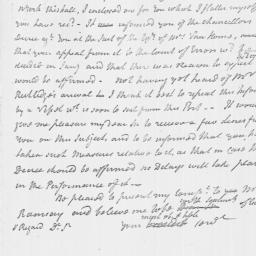 I enclosed one for you which I flatter myself
you have recd. It informed you of the Chancellors
decree agt. you at the suit of the Exrs. of Mr. Van Horne,
that your appeal from it to the Court of Errors wd. be
in Jany and that there was reason to expect
would be affirmed - Not having yet heard of Mr.
arrival in I think it best to repeat this
by a Vessel wh. is soon to sail from this Port. - It would
give me pleasure my dear Sir to receive a few lines from
you on this Subject and to be informed that you have
taken such measures relative to it, as that in case the
Decree should be affirmed no Delays will take place
in the Performance of it -
Be pleased to present my compts. to
Ramsay and believe me to be with Sentiments of
& Regard Dr. Sr. your most obt. & hble servt.